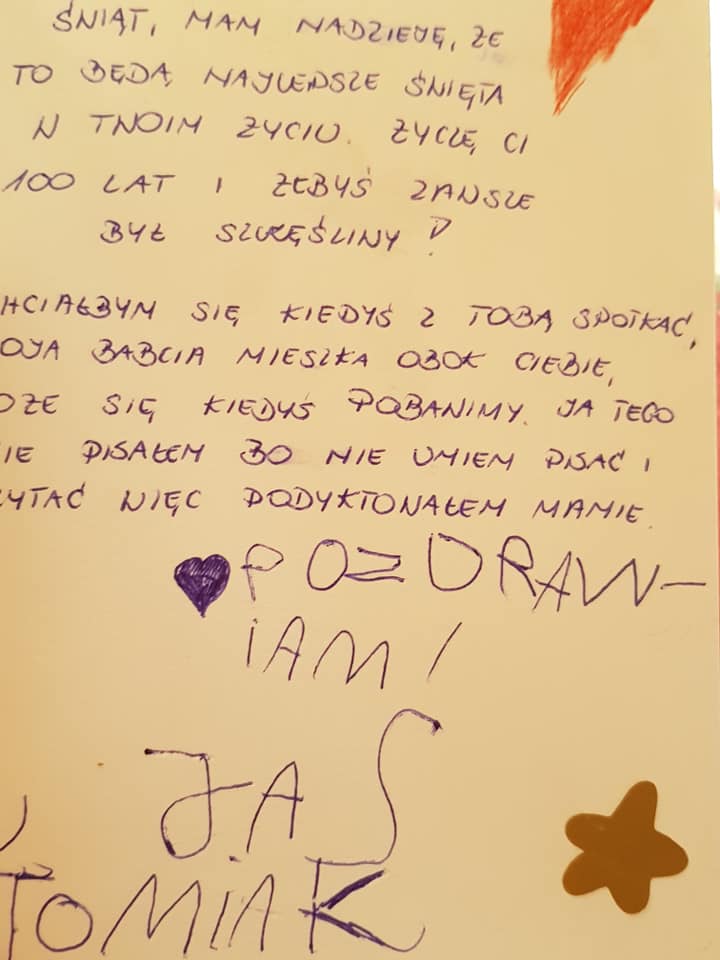 ŚWIĄT, MAM NADZIEJĘ, ŻE
TO BĘDĄ NAJLEPSZE ŚWIĘTA
W TWOIM ŻYCIU. ŻYCZĘ CI
100 LAT I ŻEBYŚ ZAWSZE
BYŁ SZCZĘŚLIWY!
HCIAŁBYM SIĘ KIEDYŚ Z TOBĄ SPOTKAĆ,
OJA BABCIA MIESZKA OBOK CIEBIE,
OŻE SIĘ KIEDYŚ POBAWIMY. JA TEGO
IE PISAŁEM BO NIE UMIEM PISAĆ I
ZYTAĆ WIĘC PODYKTOWAŁEM MAMIE.
POZDRAW-
IAM!
JAŚ
TOMIAK